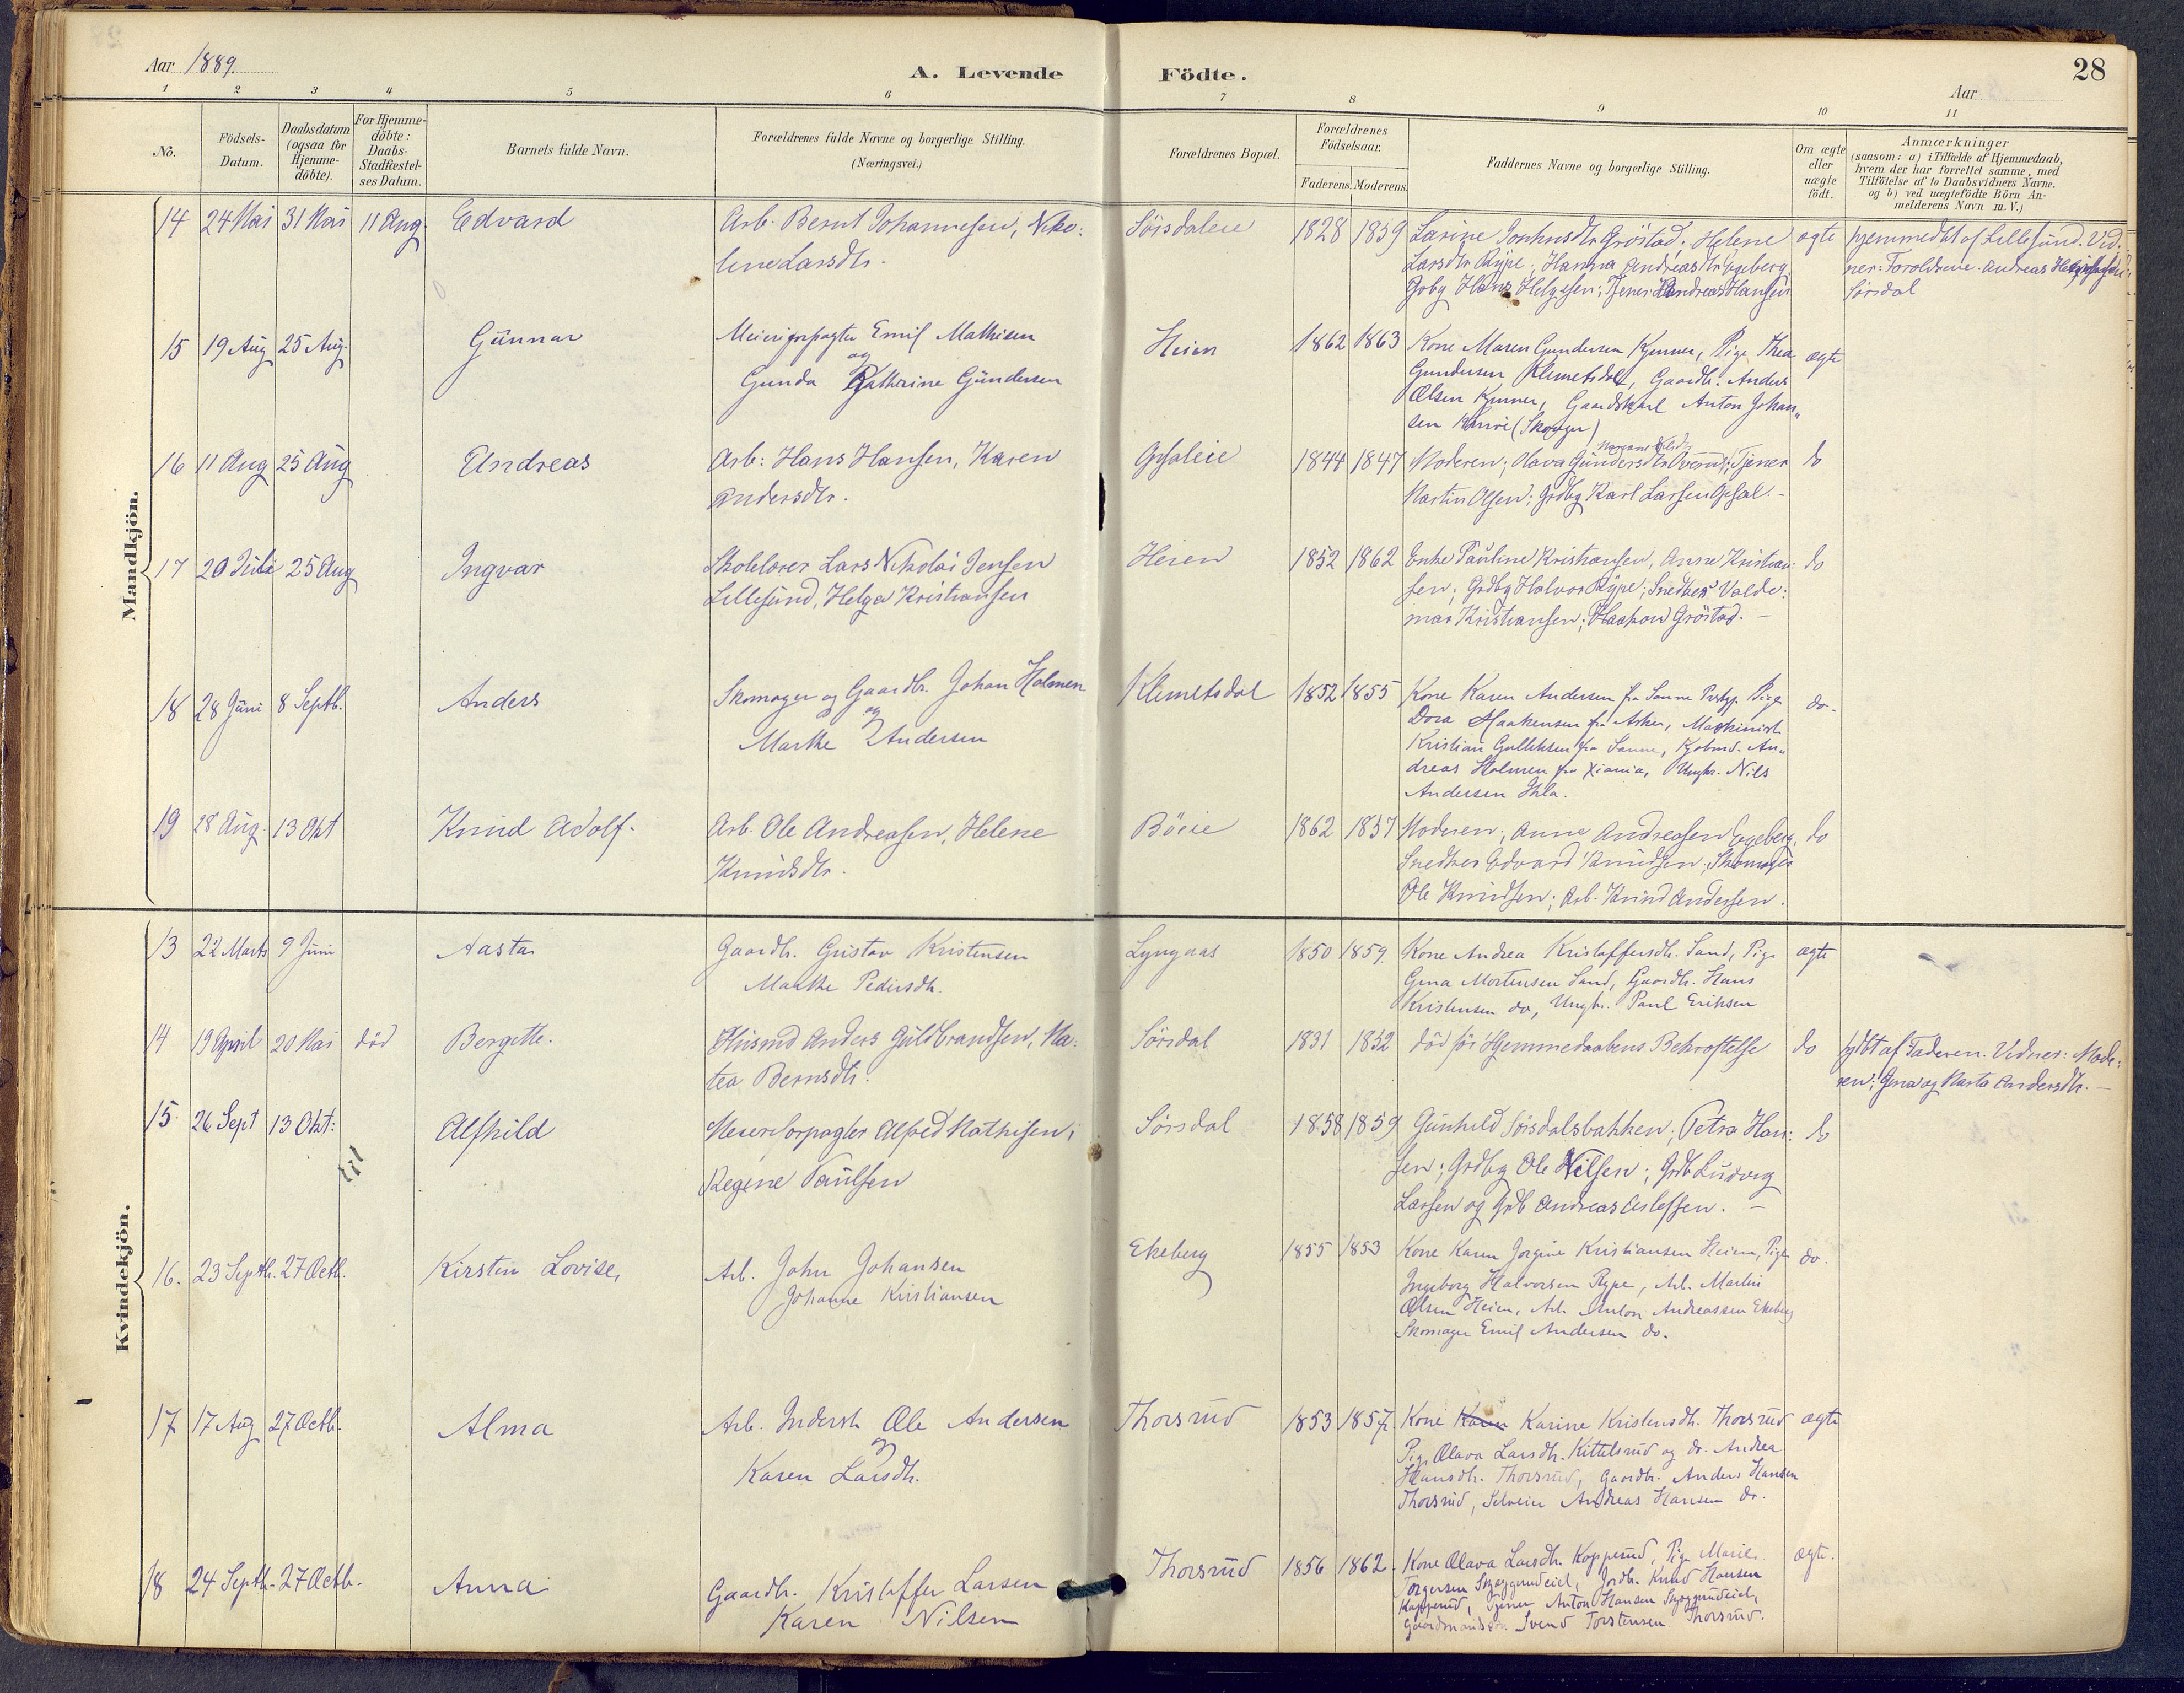 Aar 1889.
A. Levende Födte.
28
Aar
1 2 3 4 5 6 7 8 9 10 11
No.
Födsels-Datum.
Daabsdatum (ogsaa for Hjemme-döbte).
For Hjemme-döbte: Daabs-Stadfæstel-ses Datum.
Barnets fulde Navn.
Forældrenes fulde Navne og borgerlige Stilling.
(Næringsvei.)
Forældrenes Bopæl.
Forældrenes Födselsaar.
Faderens. Moderens.
Faddernes Navne og borgerlige Stilling.
Om ægte eller uægte födt.
Anmærkninger
(saasom: a) i Tilfælde af Hjemmedaab,
hvem der har forrettet samme, med
Tilföielse af to Daabsvidners Navne.
og b) ved uægtefödte Börn An-
melderens Navn m. V.)
Mandkjön.
14 24 Mai 31 Mai 11 Aug. Edvard Arb. Bernt Johannesen, Niko: Sörsdaleie 1828 1859 Larine Gröstad; Helene ægte hjemmedbt af Lillesund. Vid:
line Larsdtr. Larsdtr Rype; Hanna Andreasdtr Egeberg ner: Forældrene. Andreas
Hans Helgesen; Tjener Andreas Hansen Sörsdal
15 19 Aug 25 Aug. Gunnar Meieriforpagter Emil Mathisen Heien 1862 1863 Kone Maren Gundersen Kjenner, Pige Thea ægte
og
Gunda Kathrine Gundersen Gundersen Klemetsdal, Gaardb. Anders
Olsen Kjenner, Gaardskarl Anton Johan-
sen (Skoger)
16 11 Aug 25 Aug Andreas Arb: Hans Hansen, Karen Opsaleie 1844 1847 Moderen; Olava Gundersdtr Tjener do
Andersdtr. Martin Olsen; Grdbg Karl Larsen Opsal.-
17 20 Juli 25 Aug Ingvar Skolelærer Lars Nikolai Jensen Heien 1852 1862 Enke Pauline Kristiansen, Anna Kristian: do
Lillesund, Helga Kristiansen sen; Grdbg Halvor Rype; Snedker Valde:
mar Kristiansen; Haakon Gröstad.-
18 28 Juni 8 Septb. Anders Skomager og Gaardbr. Johan Holmen Klemetsdal 1852 1855 Kone Karen Andersen fra Sanne Pige do.
og
Marthe Andersen Dora Haakensen fra Asker, Maskinist
Kristian Gulliksen fra Sanne, Kjobmd. An-
dreas Holmen fra Xiania, Ungkr. Nils
Andersen Ihla.
19 28 Aug. 13 Okt Knud Adolf. Arb. Ole Andreasen, Helene Böeie 1862 1857 Moderen; Anne Andreasen Egeberg, do
Knudsdtr. Snedker Edvard Knudsen; Skomager
Ole Knudsen; Arb. Knud Andersen.
Kvindekjön.
13 22 Marts 9 Juni Aasta Gaardb. Gustav Kristensen Lyngaas 1850 1859. Kone Andrea Kristoffersdtr. Sand, Pige ægte
Marthe Pedersdtr. Gina Mortensen Sand, Gaardb. Hans
Kristensen do, Ungkr. Paul Eriksen
14 19 April 20 Mai död Bergitte. Husmd Anders Guldbrandsen, Ma: Sörsdal 1831 1832 död för Hjemmedaabens Bekræftelse do hjdbt af Faderen. Vidner: Mode:
tea Berntsdtr. ren; Gina og Marta Andersdtr.-
15 26 Sept 13 Okt: Alfhild Meieriforpagter Alfred Mathisen; Sörsdal 1858 1859 Gunhild Sörsdalsbakken; Petra Han: do
Regine Paulsen sen; Grdbg Ole Nilsen; Grdb Ludvig
Larsen og Grdb Andreas Aslessen.-
16. 23 Septb. 27 Octb. Kirsten Lovise, Arb. John Johansen Ekeberg 1855 1853 Kone Karen Jorgine Kristiansen Heien, Pige do.
Johanne Kristiansen Ingeborg Halvorsen Rype, Arb. Martin
Olsen Heien, Arb. Anton Andreassen Ekeberg
Skomager Emil Andersen do.
17 17 Aug 27 Octb. Alma Arb. Inderst Ole Andersen Thorsrud 1853 1857 Kone Karen Karine Kristensdtr. Thorsrud ægte
og
Karen Larsdtr. Pige Olava Larsdtr. Kittelsrud og do. Andrea
Hansdtr. Thorsrud, Gaardbr. Anders Hansen
Thorsrud, Selveier Andreas Hansen do.
18 24 Septb. 27 Octb. Anna Gaardb. Kristoffer Larsen Thorsrud 1856 1862. Kone Olava Larsdtr. Kopperud, Pige Marie ægte.
Karen Nilsen Torgersen Gordb. Knud Hansen
Kopperud, Tjener Anton Hansen
Svend Torstensen Thorsrud.